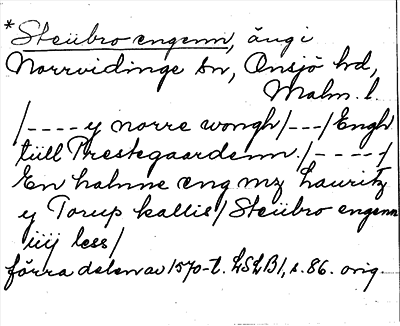 *Steübro engenn, äng i
Norrvidinge sn, Onsjö hd,
Malm. l.
/----y norre wongh/---/Engh
tüll Prestegaardenn./----/
En halnne eng mz Lauritz
y Torup kallis/Steübro engenn
iiij less/
förra delen av 1570-t. LSLB1, s. 86. orig.